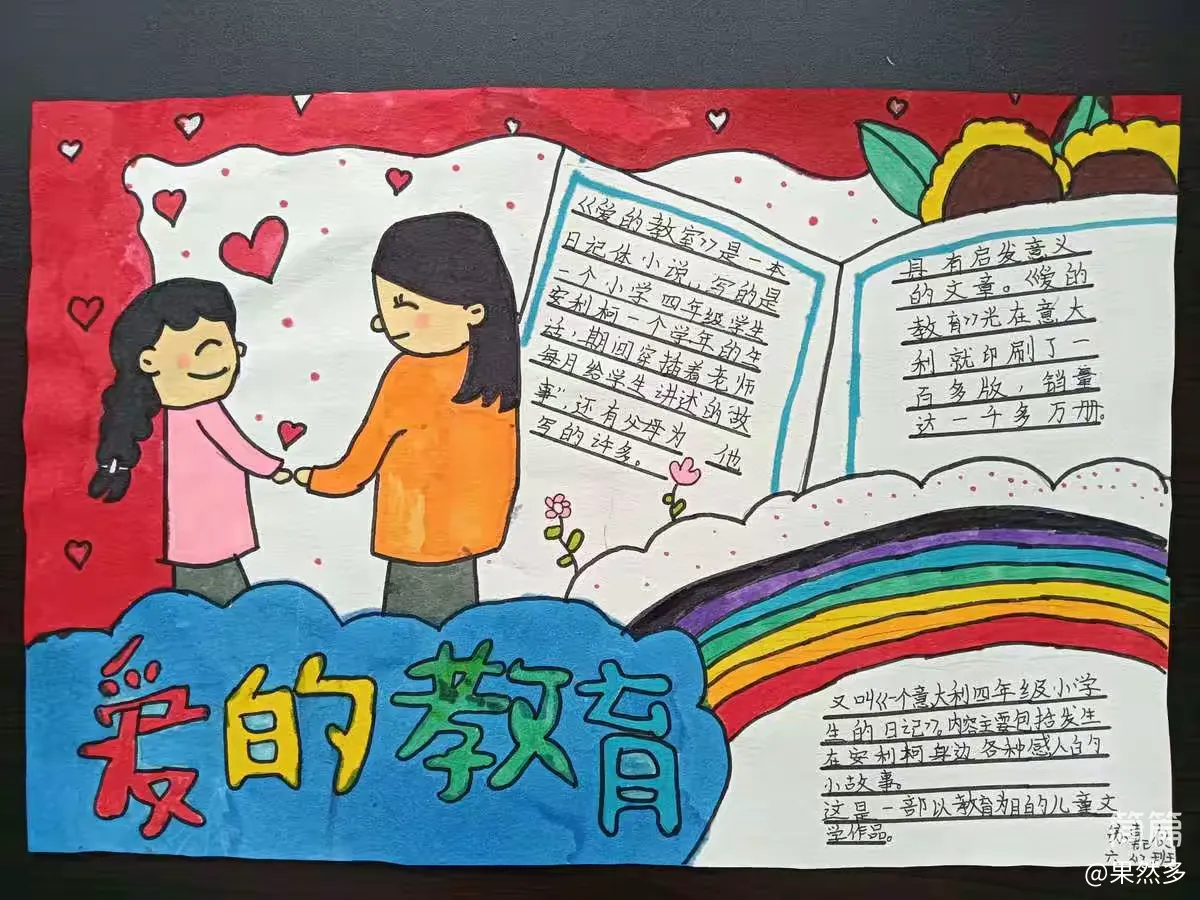 《爱的教室》是一本
日记体小说,写的是
一个小学四年级学生
安利柯一个学年的生
活,期间穿插着老师
每月给学生讲述的故
事”,还有父母为 他
写的许多。
具有启发意义
的文章。《爱的
教育》光在意大
利就印刷了一
百多版,销量
达一千多万册。
爱的教育
又叫《一个意大利四年级小学
生的日记》。内容主要包括发生
在安利柯身边各种感人的
小故事。
这是一部以教育为目的儿童文
学作品。
六 班
@果然多